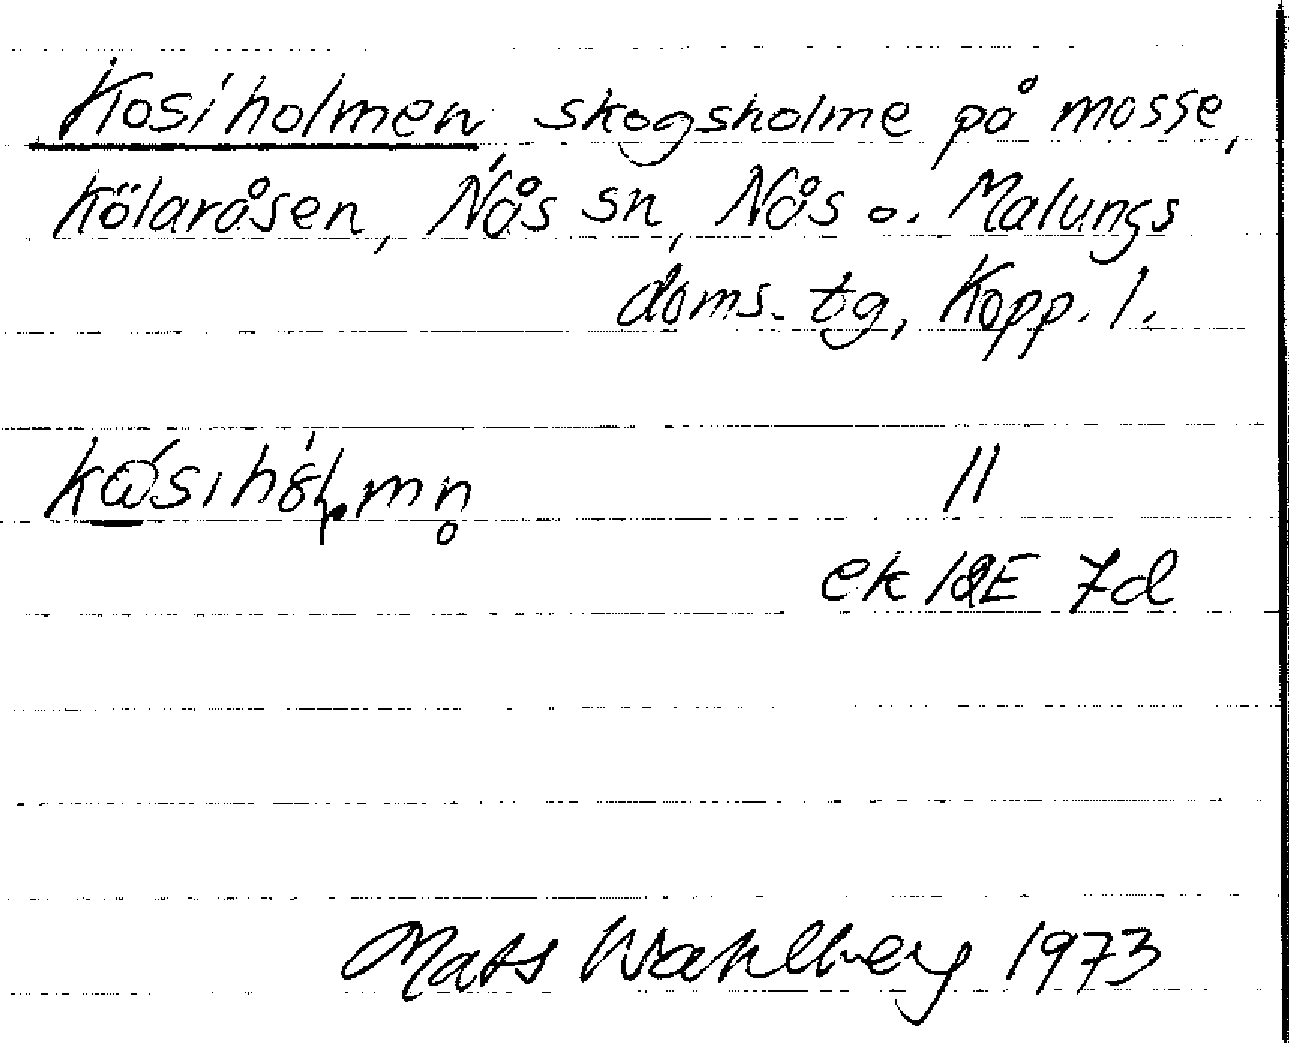 Kosiholmen skogsholme på mosse,
Kölaråsen, Nås sn, Nås o. Malungs
doms. tg, Kopp. l.
11
ek 12E 7d
Mats Wahlberg 1973